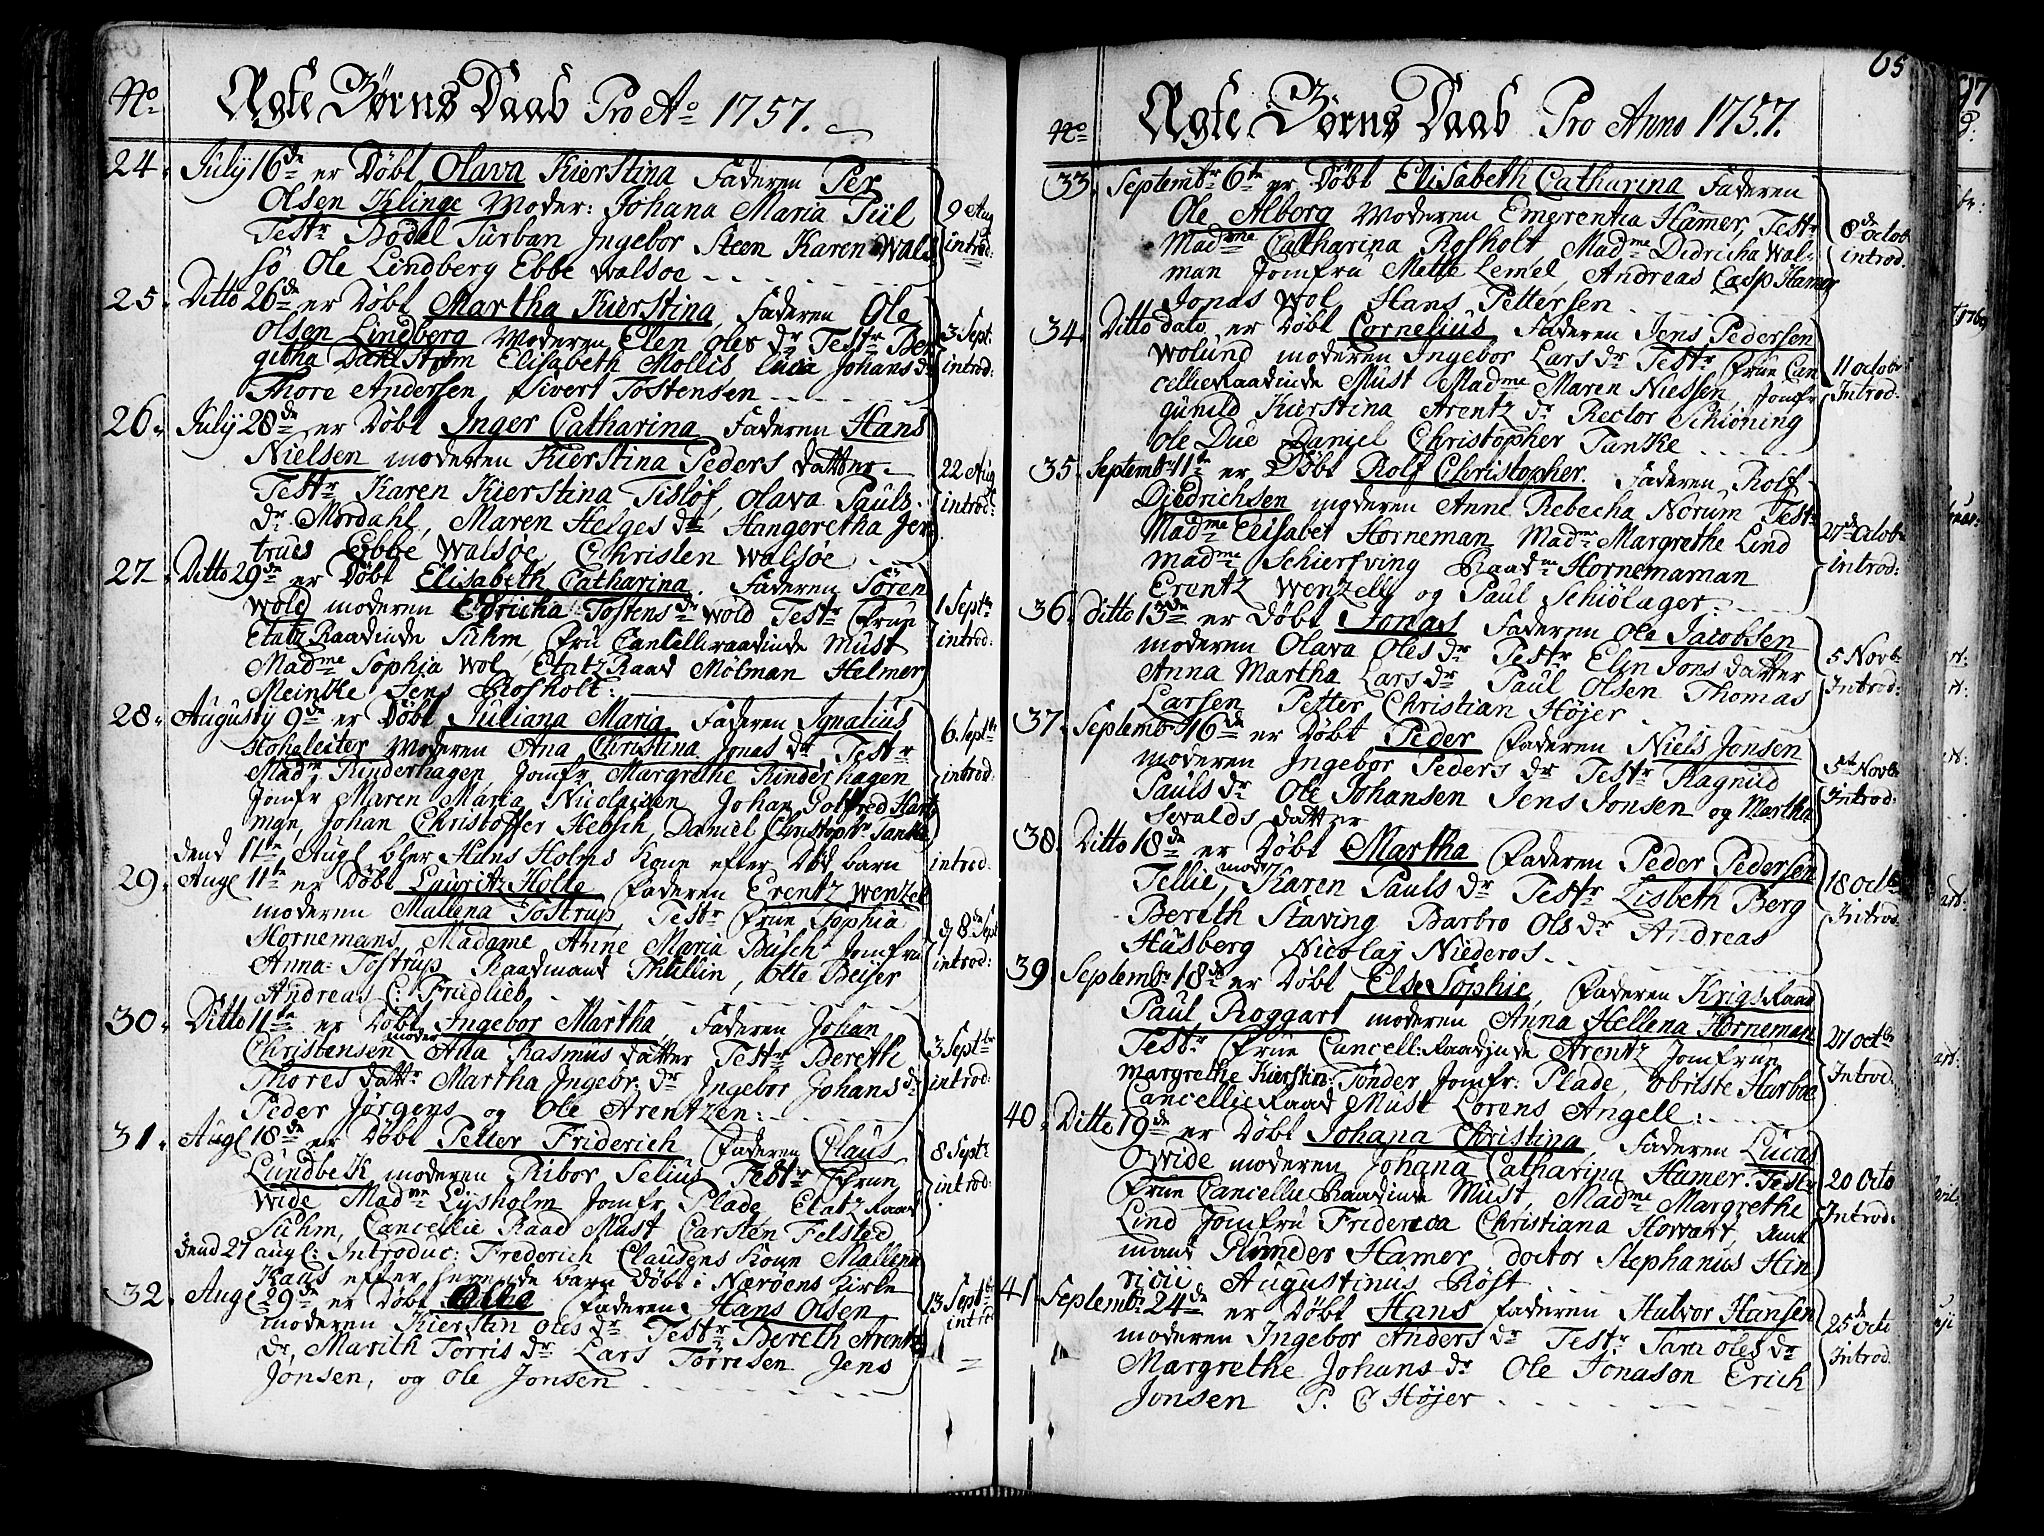 No Ægte Børns Daab Pro Ao 1757.
24. July 16de er Døbt Olava Kierstina Faderen Per
Olsen Klinge Moder: Johana Maria Piil
Testr Bodel Turban Ingebor Steen Karen Wal
sö Ole Lindberg Ebbe Walsøe
9 Aug introd:
25. Ditto 26de er Døbt Martha Kierstina Faderen Ole
Olsen Lindberg Moderen Elen Oles dr Testr Ber
githa Dahlstrøm Elisabeth Mollis Lucia Johans dr
Thore Andersen Sivert Tostensen
3 Sept: introd:
26. July 28de er Døbt Inger Catharina Faderen Hans
Nielsen moderen Kierstina Peders datter
Testr Karen Kierstina Tisløf, Olava Pauls
dr Mordahl, Maren Helges dr Hangeretha Jer
trues Ebbe Walsøe, Christen Walsøe
22 Aug introd:
27. Ditto 29de er Døbt Elisabeth Catharina. Faderen Sören
Wold moderen Edricha Tostens dr Wold Testr Frue
EtatzRaadinde Suhm, Fru Cancelliraadinde Must
Madme Sophia Wol, EtatzRaad Mölman Helmer
Meinke Jens Rosholt:
1 Septr introd:
28. Augusty 9de er Døbt Juliana Maria, Faderen Ignatius
Hoheleiter Moderen Ana Christina Jonas dr, Testr
Madm Rinderhagen, Jomfr Margrethe Rinderhagen
Jomfr Maren Maria Nicolaisen Johan Gotfred Hart
man, Johan Christoffer Hebsch, Daniel Christophr Tanke
6 Septbr introd:
dend 11te Augl bler Hans Holms Kone efter Død barn introd.
29. Augl 11te er Døbt Lauritz Holte Faderen Erentz Wenzel
moderen Mallena Tostrup, Testr Frue Sophia
Hornemans, Madame Anne Maria Busch Jomfru
Anna Tostrup Raadmand Thellin, Otte Beijer
Andreas C: Frudlieb
d 8de Sept introd:
30. Ditto 11te er Døbt Ingebor Martha, Faderen Johan
Christensen moder Ana Rasmus datter Testr Berethe
Thores dattr Martha Ingebr: dr Ingebor Johans dr
Peder Jørgens og Ole Arentzen:
3 Septbr introd:
31. Augl 18de er Døbt Petter Friderich Faderen Claus
Lundbek moderen Ribor Selius Testr Frue
Wide Madme Lysholm Jomfr Plade, Etatz Raad
Suhm, Cancellie Raad Must Carsten Felsted
8 Sept: introd:
Dend 27 augl: Introduc: Frederich Clausens Kone Mallena
Kaas efter barn Døbt i Nærøens Kirke
32. Augl 29de er Døbt Faderen Hans Olsen
moderen Kierstin Oles dr Testr Bereth Arentz
dr, Marith Torris dr Lars Torrisen Jens
Jonsen, og Ole Jonsen
13 Septbr introd
65
No Ægte Børns Daab Pro Anno 1757.
33. Septembr 6te er Døbt Elisabeth Catharina Faderen
Ole Alborg Moderen Emerentia Hamer, Testr
Madme Catharina Rosholt Madme Didricha Wal-
man Jomfru Mette Lemel, Andreas Casp Hamer
Jonas Wol Hans Pettersen
8de Octob introd.
34. Ditto dato er Døbt Cornelius Faderen Jens Pedersen
Wolund moderen Ingebor Lars dr Testr Frue Can
cellieRaadinde Must Madme Maren Nielsen, Jomfr
Gunild Kierstina Arentz dr Rector Schiöning
Ole Due Daniel Christopher Tanke
11 octobr Introd:
35. Septembr 11te er Døbt Rolf Christopher. Faderen Rolf
Diedrichsen moderen Anne Rebecha Norum Testr
Madme Elisabet Horneman Madme Margrethe Lind
Madme Schierfving Raadm Hornemaman
Erentz Wenzell og Paul Schiölager:
27de Octobr introd:
36. Ditto 13de er Døbt Jonas Faderen Ole Jacobsen
moderen Olava Oles dr Testr Elin Jons datter
Anna Martha Lars dr Paul Olsen Thomas
Larsen Petter Christian Højer
5 Novbr Introd:
37. Septembr 16de er Døbt Peder Faderen Niels Jonsen
moderen Ingebor Peders dr Testr Ragnild
Pauls dr Ole Johansen Jens Jonsen og Martha
Sevalds datter
5te Novbr Introd:
38. Ditto 18de er Døbt Martha Faderen Peder Pedersen
Tellie, moder Karen Pauls dr Testr Lisbeth Berg
Bereth Staving Barbro Ols dr Andreas
Husberg Nicolay Niederos
18 octbr Introd:
39. Septembr 18de er Døbt Else Sophie, Faderen KrigsRaad
Paul Roggart moderen Anna Hellena Horneman
Testr Frue Cancell:Raadjnde Arentz Jomfrue
Margrethe Kierstin: Tønder Jomfr: Plade, obrilste Hurboe
CancellieRaad Must Lorens Angell:
27 octbr Introd:
40. Ditto 19de er Døbt Johana Christina, Faderen Lucas
Owide moderen Johana Catharina Hamer. Testr
Frue Cancellie Raadinde Must, Madme Margrethe
Lind Jomfru Friderica Christiana Howart, Amt
mand Hamer, doctor Stephanus Hin
ricii Augustinus Röst
20 Octo Introd:
41. Septembr 24de er Døbt Hans faderen Halvor Hansen
moderen Ingebor Anders dr Testr: Sara Oles dr
Margrethe Johans dr Ole Jonason Erich
Jonsen P. C Højer
25de Octo Introd.